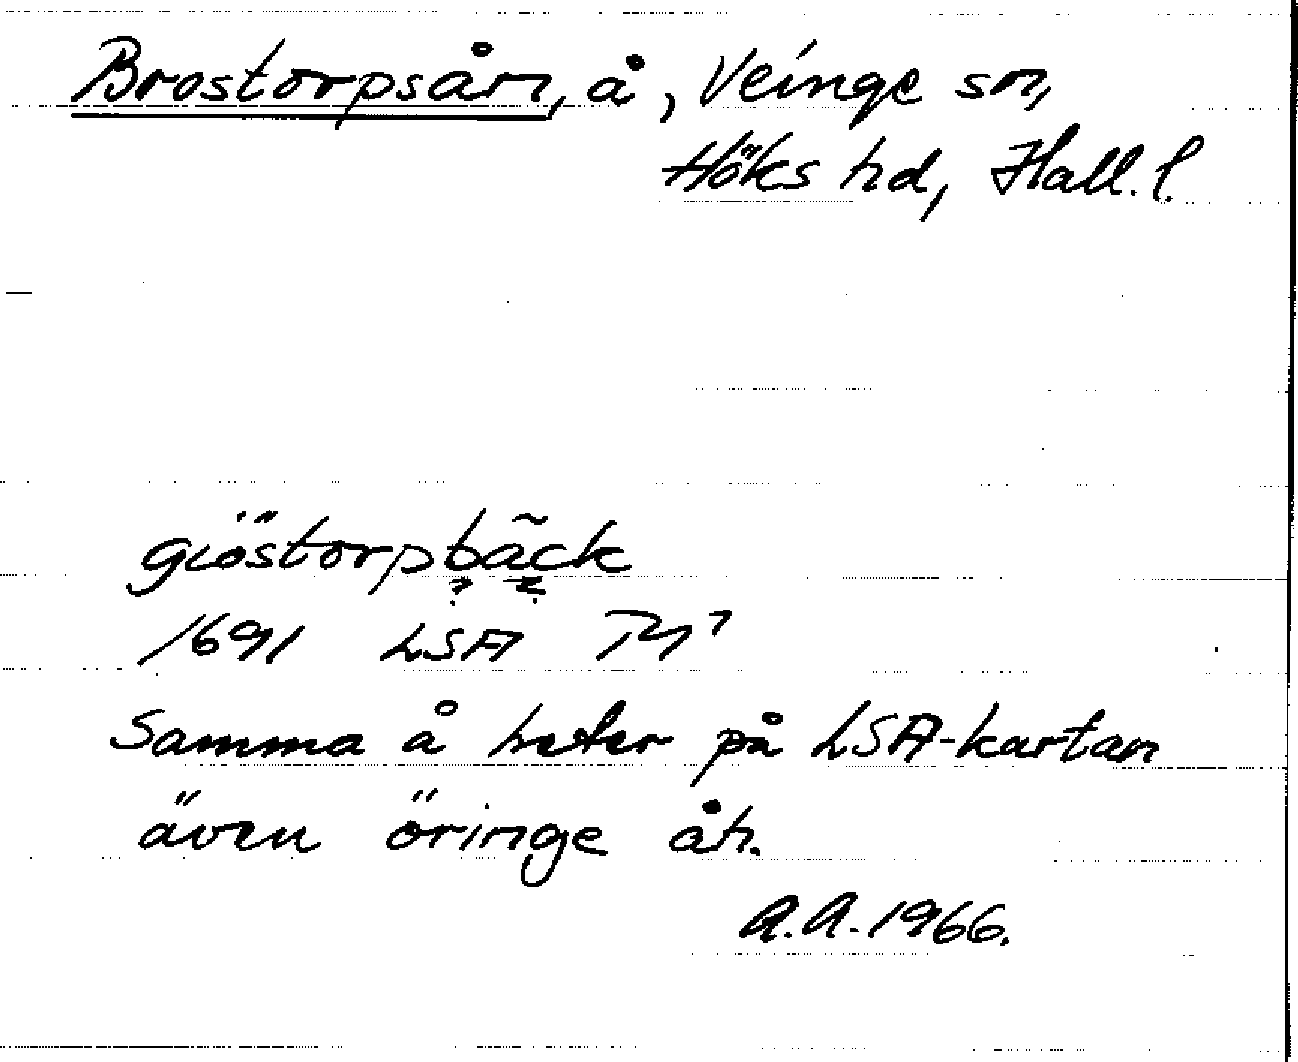 Brostorpsån, å, Veinge sn,
Höks hd, Hall. l.
giöstorpbãck
1691 LSA
Samma å heter på LSA-kartan
även öringe åh.
A.A. 1966.